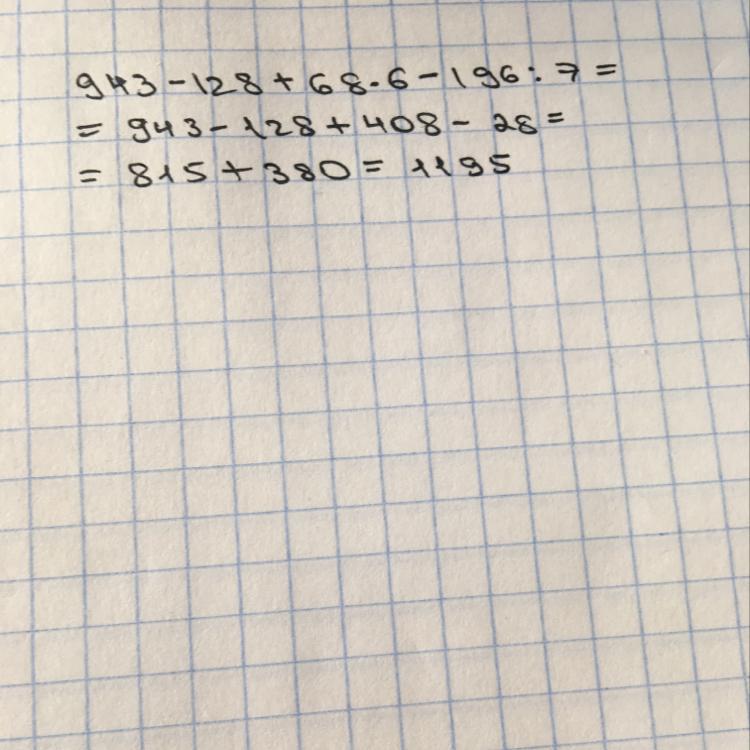 943-128+68·6-196:7=
= 943-128+408-28=
= 815+380= 1195